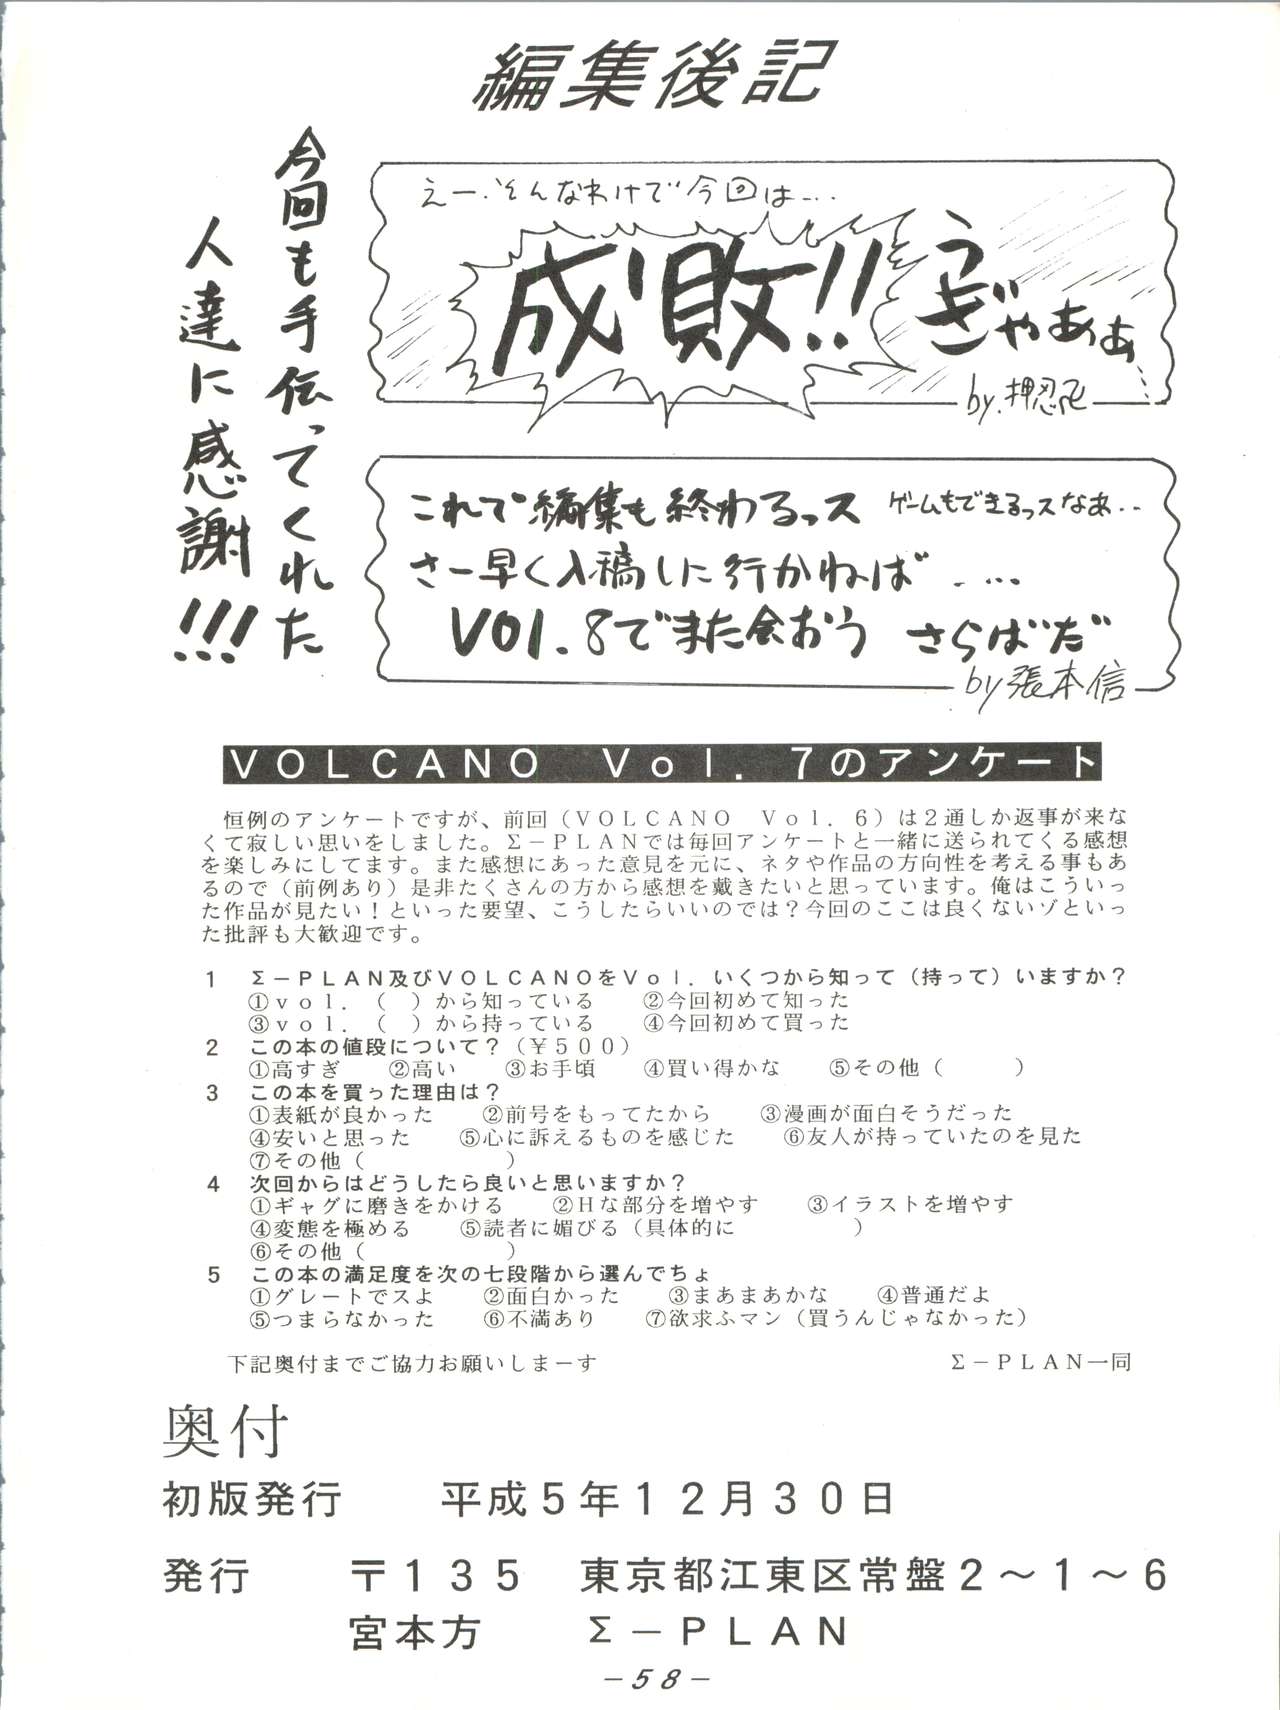 編集後記
今回も手伝ってくれた
人達に感謝!!!
えー、そんなわけで今回は...
成敗!!
うぎゃあぁ...
by.押忍
これで編集も終わるっス ゲームもできるっスなあ..
さー早く入稿しに行かねば.....
VOl.8でまた会おう さらばだ
by 張本信
VOLCANO Vol.7のアンケート
恒例のアンケートですが、前回（VOLCANO Vol.6）は2通しか返事が来な
くて寂しい思いをしました。Σ－PLANでは毎回アンケートと一緒に送られてくる感想
を楽しみにしてます。また感想にあった意見を元に、ネタや作品の方向性を考える事もあ
るので（前例あり）是非たくさんの方から感想を戴きたいと思っています。俺はこういっ
た作品が見たい！といった要望、こうしたらいいのでは？今回のここは良くないゾといっ
た批評も大歓迎です。
1 Σ－PLAN及びVOLCANOをVol.いくつから知って（持って）いますか？
①vol.（ ）から知っている ②今回初めて知った
③vol.（ ）から持っている ④今回初めて買った
2 この本の値段について？（￥500）
①高すぎ ②高い ③お手頃 ④買い得かな ⑤その他（ ）
3 この本を買った理由は？
①表紙が良かった ②前号をもってたから ③漫画が面白そうだった
④安いと思った ⑤心に訴えるものを感じた ⑥友人が持っていたのを見た
⑦その他（ ）
4 次回からはどうしたら良いと思いますか？
①ギャグに磨きをかける ②Hな部分を増やす ③イラストを増やす
④変態を極める ⑤読者に媚びる（具体的に ）
⑥その他（ ）
5 この本の満足度を次の七段階から選んでちょ
①グレートでスよ ②面白かった ③まあまあかな ④普通だよ
⑤つまらなかった ⑥不満あり ⑦欲求ふマン（買うんじゃなかった）
下記奥付までご協力お願いしまーす Σ－PLAN一同
奥付
初版発行 平成5年12月30日
発行 〒135 東京都江東区常盤2～1～6
宮本方 Σ－PLAN
－58－